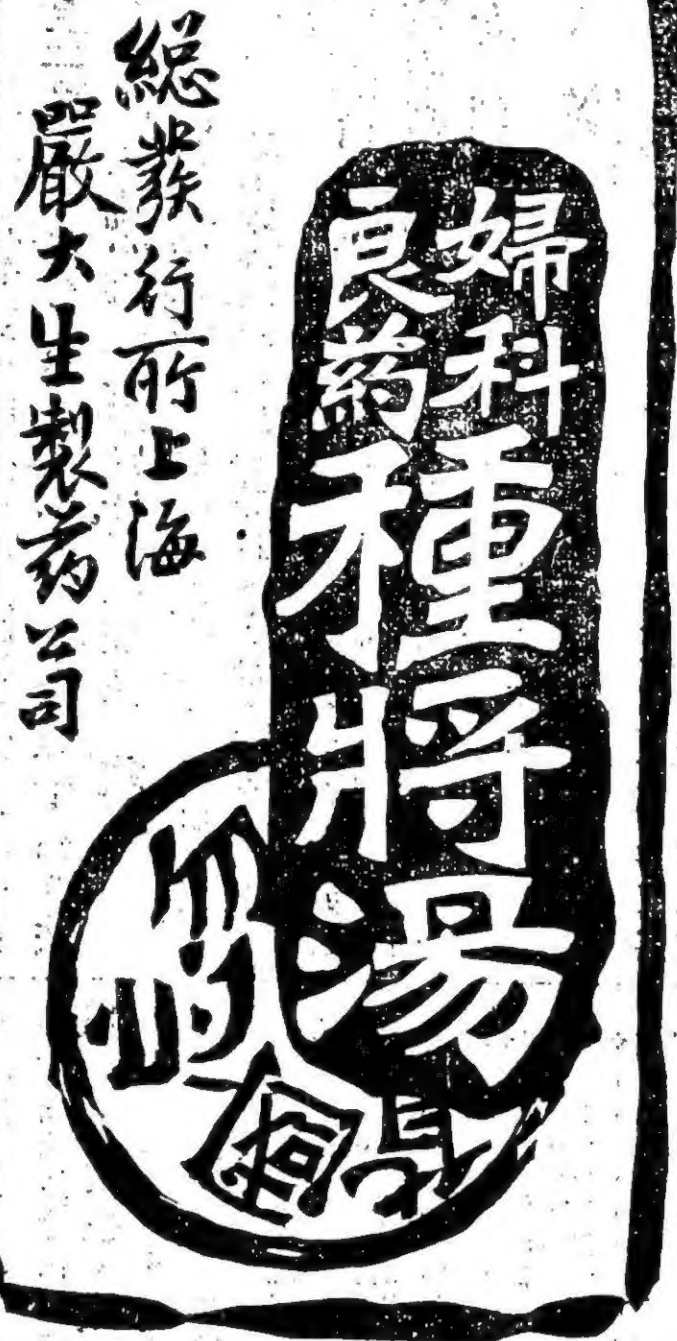 婦科
良藥
種將湯
總發行所上海
嚴大生製药公司